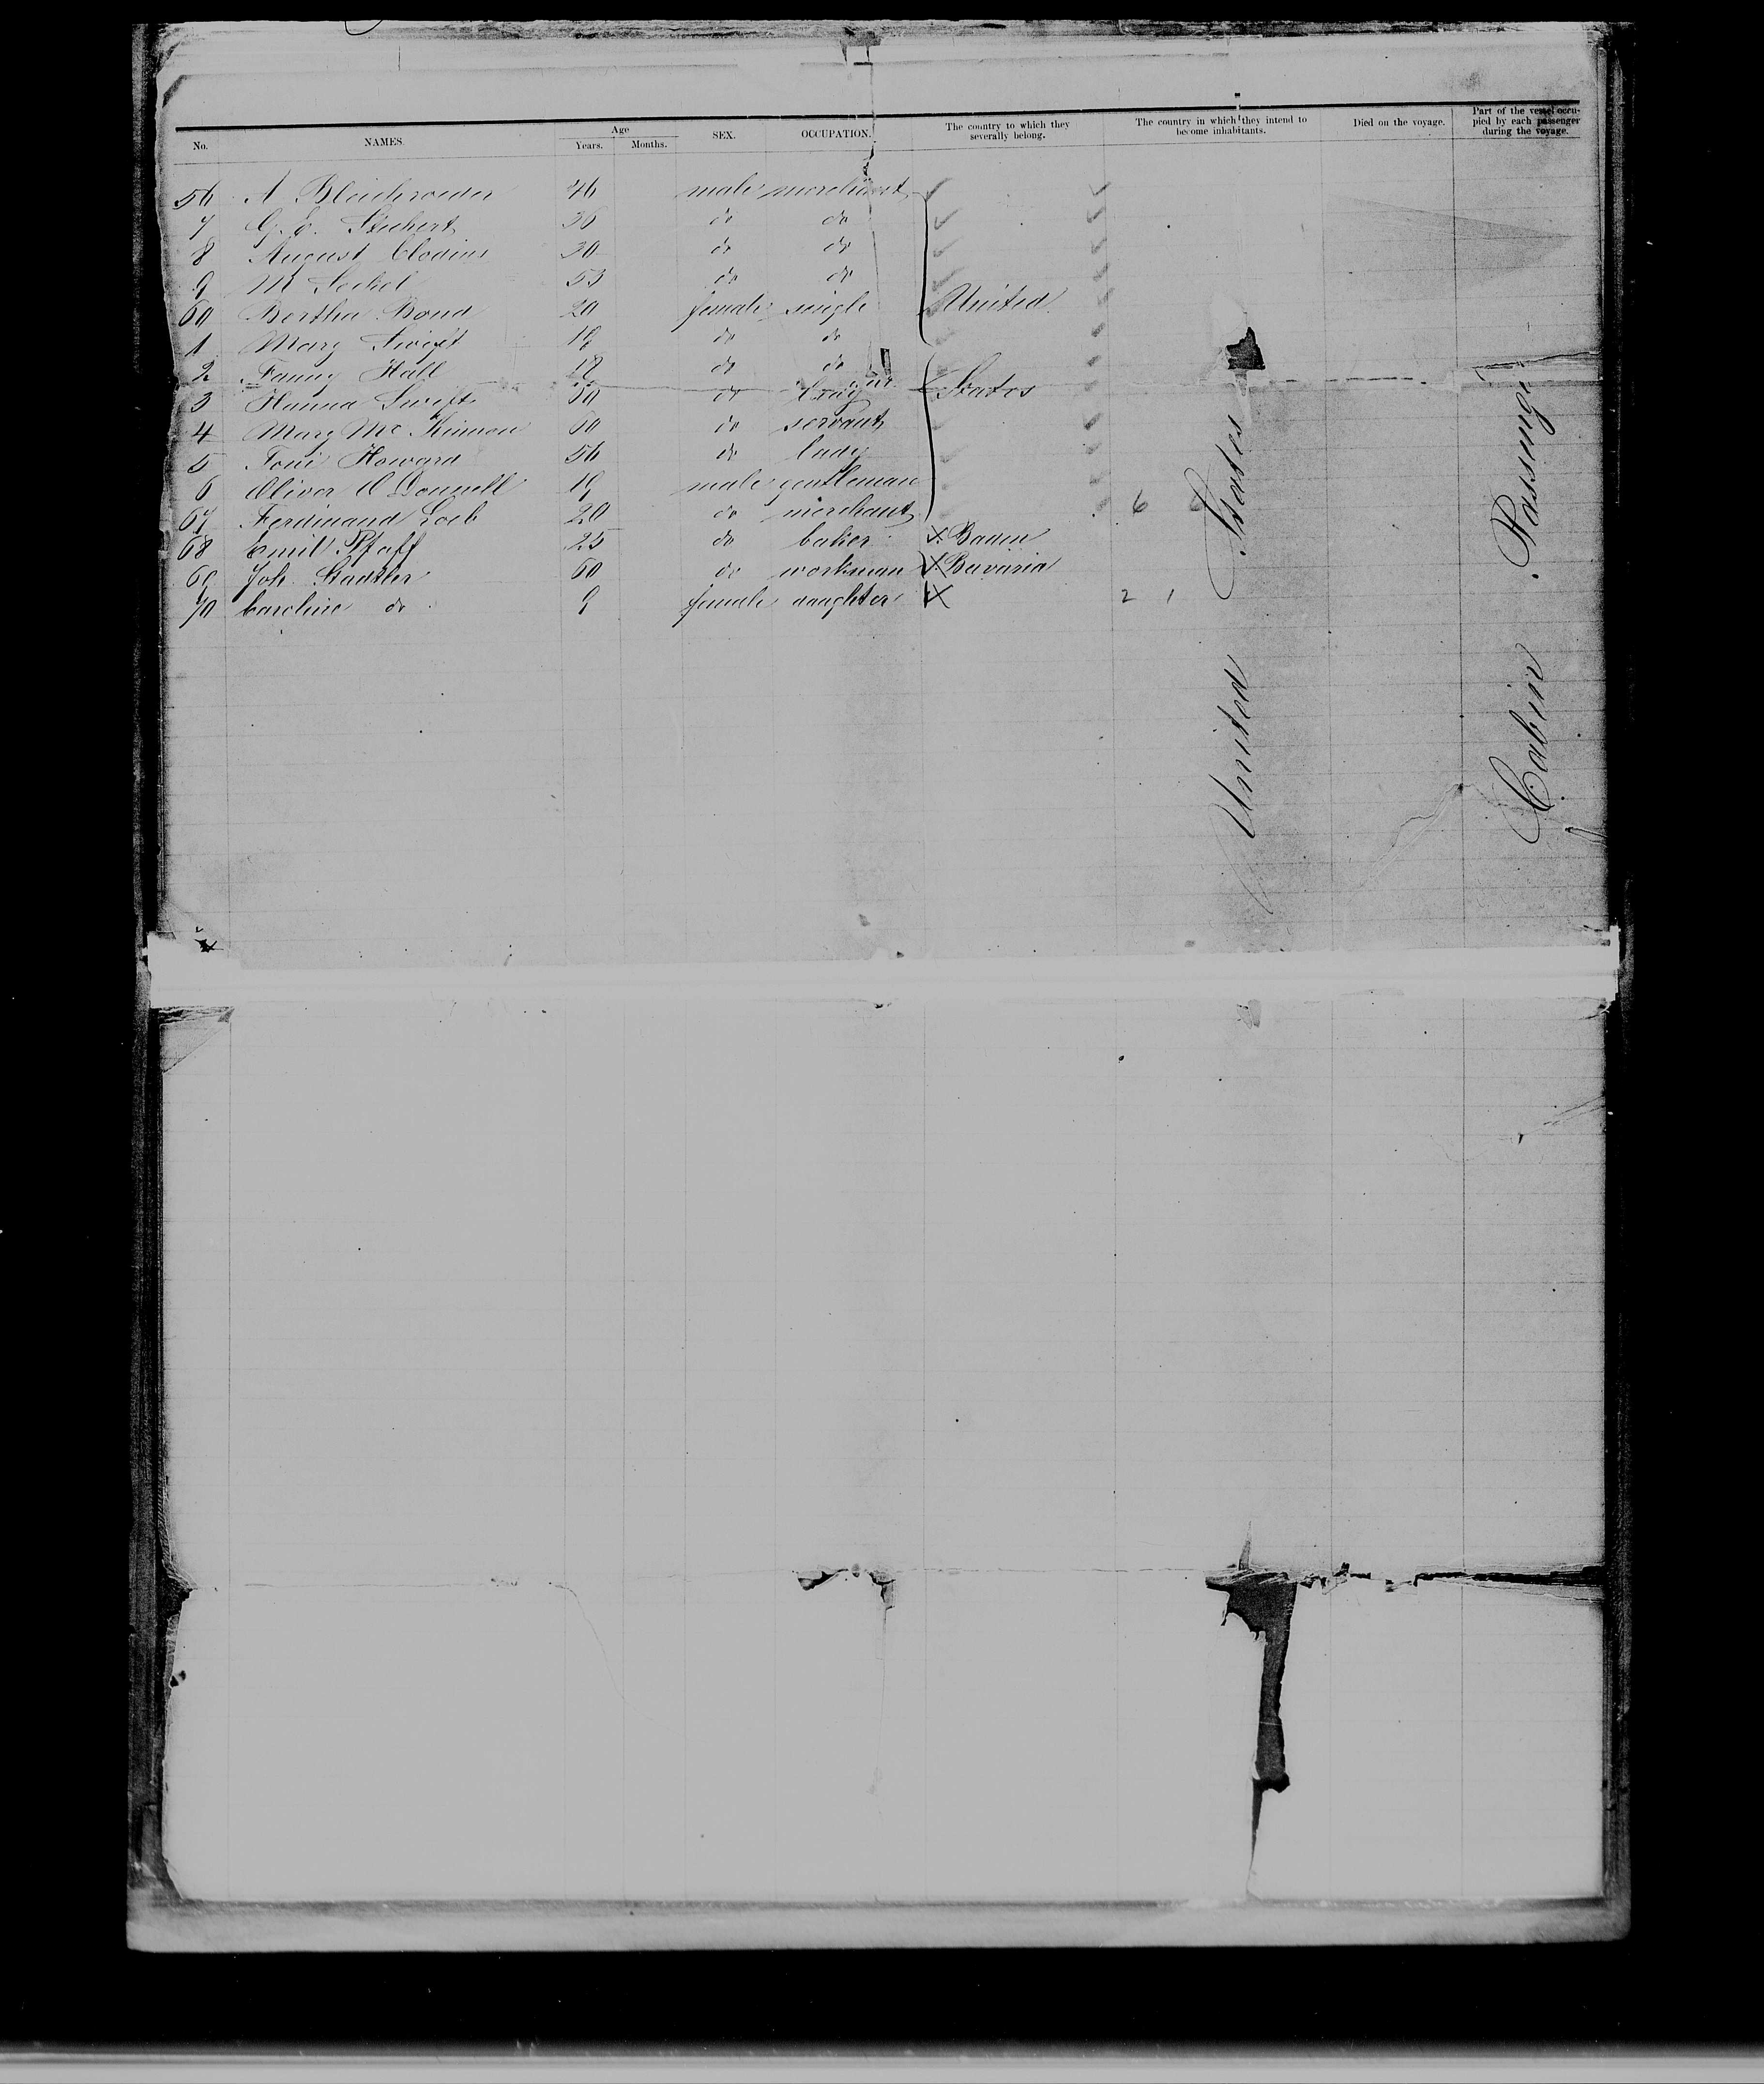 No. NAMES. Age Years. Months. SEX. OCCUPATION. The country to which they severally belong. The country in which they intend to become inhabitants. Died on the voyage. Part of the vessel occupied by each passenger during the voyage.
56 A Bleichroeder 46 male merchant
7 G. E. Stechert 36 do do
8 August Clodius 30 do do
9 M Seckel 53 do do
60 Bertha Bond 20 female single United
1 Mary Swift 19 do do
2 Fanny Hall 18 do do
3 Hanna Swift 50 do lady States
4 Mary Mc Kinnon 60 do servant
5 Toni Howard 56 do lady
6 Oliver O Donnell 19 male gentleman
67 Ferdinand Loeb 20 do merchant 6 6
68 Emil Pfaff 25 do baker Baden
69 Joh. Stadtler 60 do workman Bavaria
70 Caroline do 9 female daughter 2 1
United States
Cabin Passenger